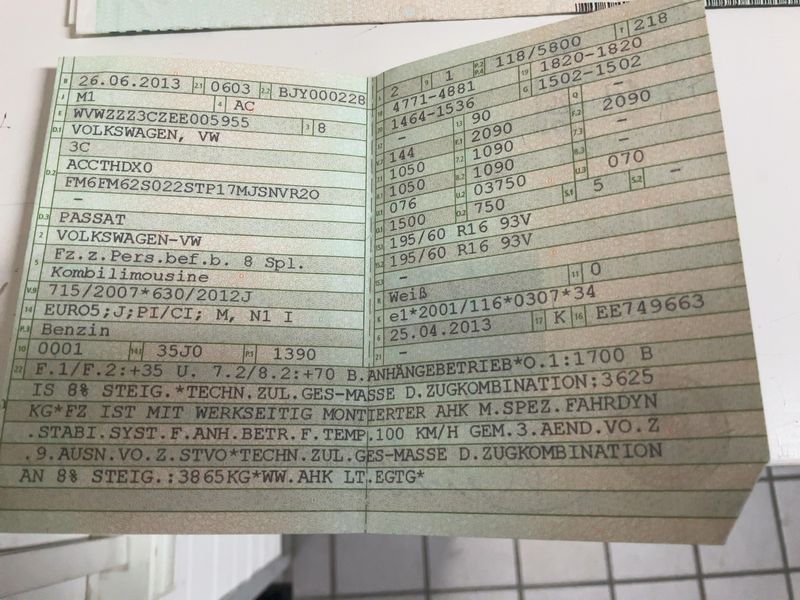 B 26.06.2013 2.1 0603 2.2 BJY000228
J M1 4 AC
E WVWZZZ3CZEE005955 3 8
D.1 VOLKSWAGEN, VW
3C
D.2 ACCTHDX0
FM6FM62S022STP17MJSNVR2O
–
D.3 PASSAT
2 VOLKSWAGEN-VW
5 Fz.z.Pers.bef.b. 8 Spl.
Kombilimousine
V.9 715/2007*630/2012J
14 EURO5;J;PI/CI; M, N1 I
P.3 Benzin
10 0001 14.1 35J0 P.1 1390
L 2 9 1 P.2 P.4 118/5800 T 218
18 4771-4881 19 1820-1820
20 1464-1536 G 1502-1502
– 13 90 Q –
V.7 144 F.1 2090 F.2 2090
7.1 1050 7.2 1090 7.3 –
8.1 1050 8.2 1090 8.3 –
U.1 076 U.2 03750 U.3 070
O.1 1500 O.2 750 S.1 5 S.2 –
15.1 195/60 R16 93V
15.2 195/60 R16 93V
15.3 –
R Weiß 11 0
K e1*2001/116*0307*34
6 25.04.2013 17 K 16 EE749663
21 –
22 F.1/F.2:+35 U. 7.2/8.2:+70 B.ANHÄNGEBETRIEB*O.1:1700 B
IS 8% STEIG.*TECHN.ZUL.GES-MASSE D.ZUGKOMBINATION:3625
KG*FZ IST MIT WERKSEITIG MONTIERTER AHK M.SPEZ.FAHRDYN
.STABI.SYST.F.ANH.BETR.F.TEMP.100 KM/H GEM.3.AEND.VO.Z
.9.AUSN.VO.Z.STVO*TECHN.ZUL.GES-MASSE D.ZUGKOMBINATION
AN 8% STEIG.:3865KG*WW.AHK LT.EGTG*